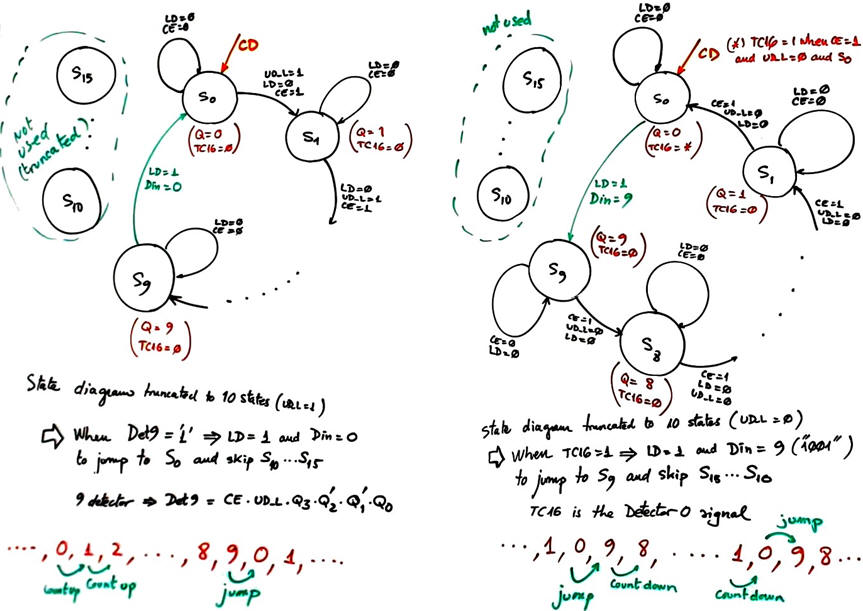 LD=0
CE=0
CD
S15
S0
UD_L=1
LD=0
CE=1
LD=0
CE=0
S1
(Q=0
TC16=0)
(Q=1
TC16=0)
Not used (truncated)
S10
LD=1
Din=0
LD=0
UD_L=1
CE=1
LD=0
CE=0
S9
(Q=9
TC16=0)
State diagram truncated to 10 states (UD_L=1)
⇨ When Det9='1' ⇒ LD=1 and Din=0
to jump to S0 and skip S10...S15
9 detector ⇒ Det9 = CE·UD_L·Q3·Q2'·Q1'·Q0
...., 0, 1, 2, ...., 8, 9, 0, 1, ....
count up
count up
jump
not used
LD=0
CE=0
CD
(*) TC16=1 when CE=1
and UD_L=0 and S0
S15
S0
CE=1
UD_L=0
LD=0
LD=0
CE=0
(Q=0
TC16=*)
S1
S10
LD=1
Din=9
(Q=1
TC16=0)
CE=1
UD_L=0
LD=0
(Q=9
TC16=0)
S9
LD=0
CE=0
CE=0
LD=0
CE=1
UD_L=0
LD=0
S8
(Q=8
TC16=0)
CE=1
LD=0
UD_L=0
State diagram truncated to 10 states (UD_L=0)
⇨ When TC16=1 ⇒ LD=1 and Din=9 ("1001")
to jump to S9 and skip S15...S10
TC16 is the Detector 0 signal
jump
...., 1, 0, 9, 8, ...... 1, 0, 9, 8...
jump
count down
count down